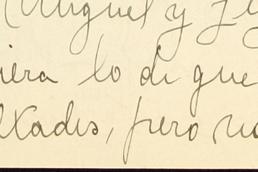 (Miguel y
iera lo di que
ltados, pero no